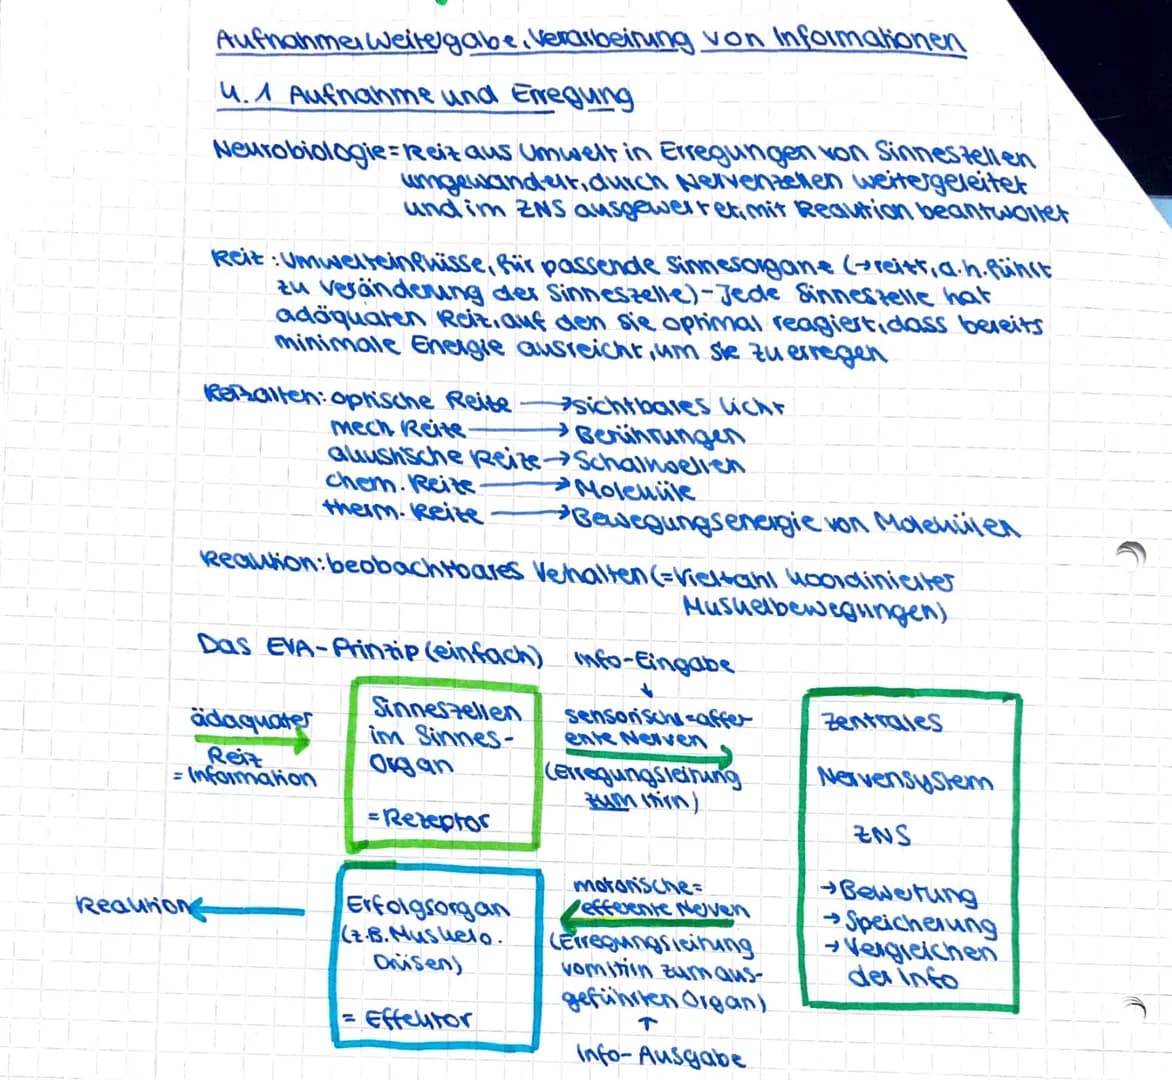 Aufnahme, Weitergabe, Verarbeitung von Informationen
4.1 Aufnahme und Erregung
Neurobiologie = Reiz aus Umwelt in Erregungen von Sinneszellen
umgewandelt, durch Nervenzellen weitergeleitet
und im ZNS ausgewertet, mit Reaktion beantwortet
Reiz: Umwelteinflüsse, für passende Sinnesorgane (→ reizt, d.h. führt
zu Veränderung der Sinneszelle) - Jede Sinneszelle hat
adäquaten Reiz, auf den sie optimal reagiert, dass bereits
minimale Energie ausreicht, um sie zu erregen
Reizarten: optische Reize → sichtbares Licht
mech. Reize → Berührungen
akustische Reize → Schallwellen
chem. Reize → Moleküle
therm. Reize → Bewegungsenergie von Molekülen
Reaktion: beobachtbares Verhalten (= Vielzahl koordinierter
Muskelbewegungen)
Das EVA-Prinzip (einfach)
Info-Eingabe
↓
ädaquater
Reiz
= Information
Sinneszellen
im Sinnes-
organ
= Rezeptor
sensorische = affer-
ente Nerven
(Erregungsleitung
zum Hirn)
Zentrales
Nervensystem
ZNS
→ Bewertung
→ Speicherung
→ Vergleichen
der Info
Reaktion
Erfolgsorgan
(z.B. Muskel o.
Drüsen)
= Effektor
motorische =
efferente Nerven
(Erregungsleitung
vom Hirn zum aus-
geführten Organ)
↑
Info-Ausgabe